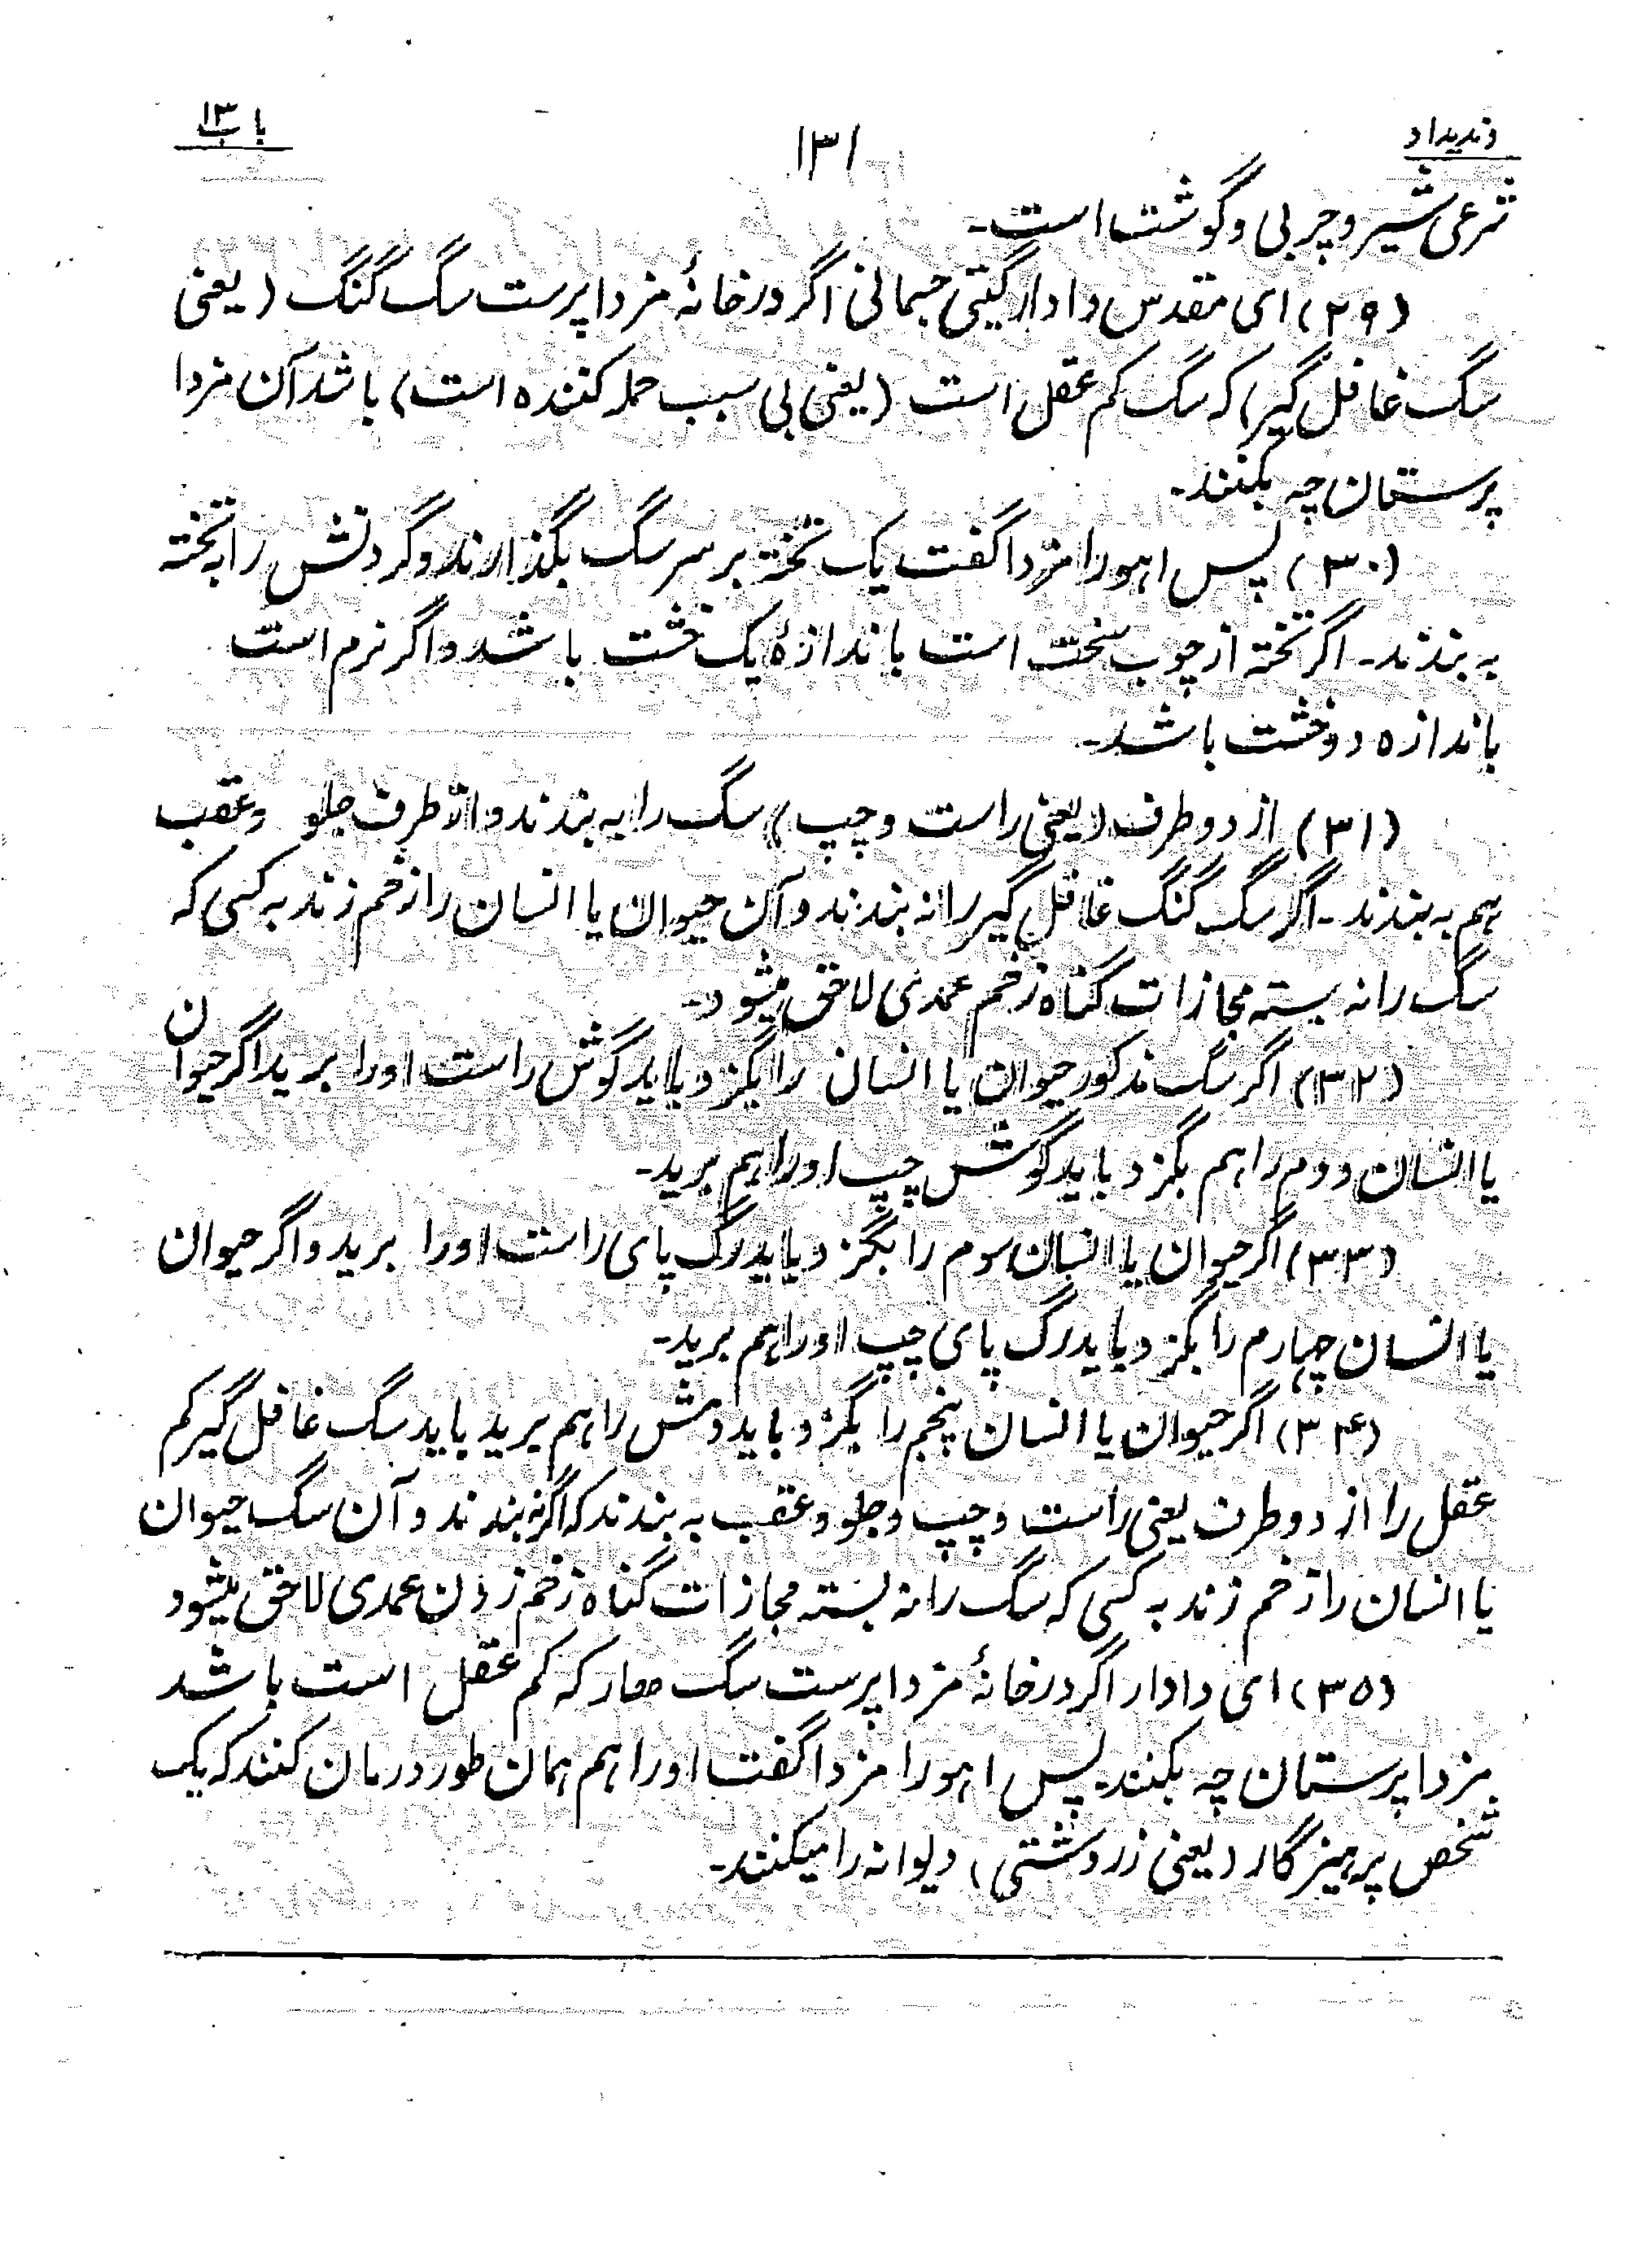 وندیداد ۱۳۱ باب ۱۳
شرعی شیر و چربی و گوشت است-
(۲۹) ای مقدس دادار گیتی جسمانی اگر در خانهٔ مزداپرست سگ گنگ (یعنی
سگ غافل گیر) که سگ کم عقل است (یعنی بی سبب حمله کننده است) باشد آن مزدا
پرستان چه بکنند-
(۳۰) پس اهورامزدا گفت یک تخته بر سر سگ بگذارند و گردنش را به تخته
به بندند- اگر تخته از چوب سخت است باندازهٔ یک خشت باشد و اگر نرم است
باندازه دو خشت باشد-
(۳۱) از دو طرف (یعنی راست و چپ) سگ را به بندند و از طرف جلو و عقب
هم به بندند- اگر سگ گنگ غافل گیر را نه بندند و آن حیوان یا انسان را زخم زند به کسی که
سگ را نه بسته مجازات گناه زخم عمدی لاحق میشود-
(۳۲) اگر سگ مذکور حیوان یا انسان را بگزد باید گوش راست او را برید اگر حیوان
یا انسان دوم را هم بگزد باید گوش چپ او را هم برید-
(۳۳) اگر حیوان یا انسان سوم را بگزد باید رگ پای راست او را برید و اگر حیوان
یا انسان چهارم را بگزد باید رگ پای چپ او را هم برید-
(۳۴) اگر حیوان یا انسان پنجم را بگزد باید دمش را هم برید باید سگ غافل گیر کم
عقل را از دو طرف یعنی راست و چپ و جلو و عقب به بندند که اگر نه بندند و آن سگ حیوان
یا انسان را زخم زند به کسی که سگ را نه بسته مجازات گناه زخم زدن عمدی لاحق میشود
(۳۵) ای دادار اگر در خانهٔ مزداپرست سگ که کم عقل است باشد
مزداپرستان چه بکنند- پس اهورا مزدا گفت او را هم همان طور درمان کنند که یک
شخص پرهیزگار (یعنی زردشتی) دیوانه را میکنند-